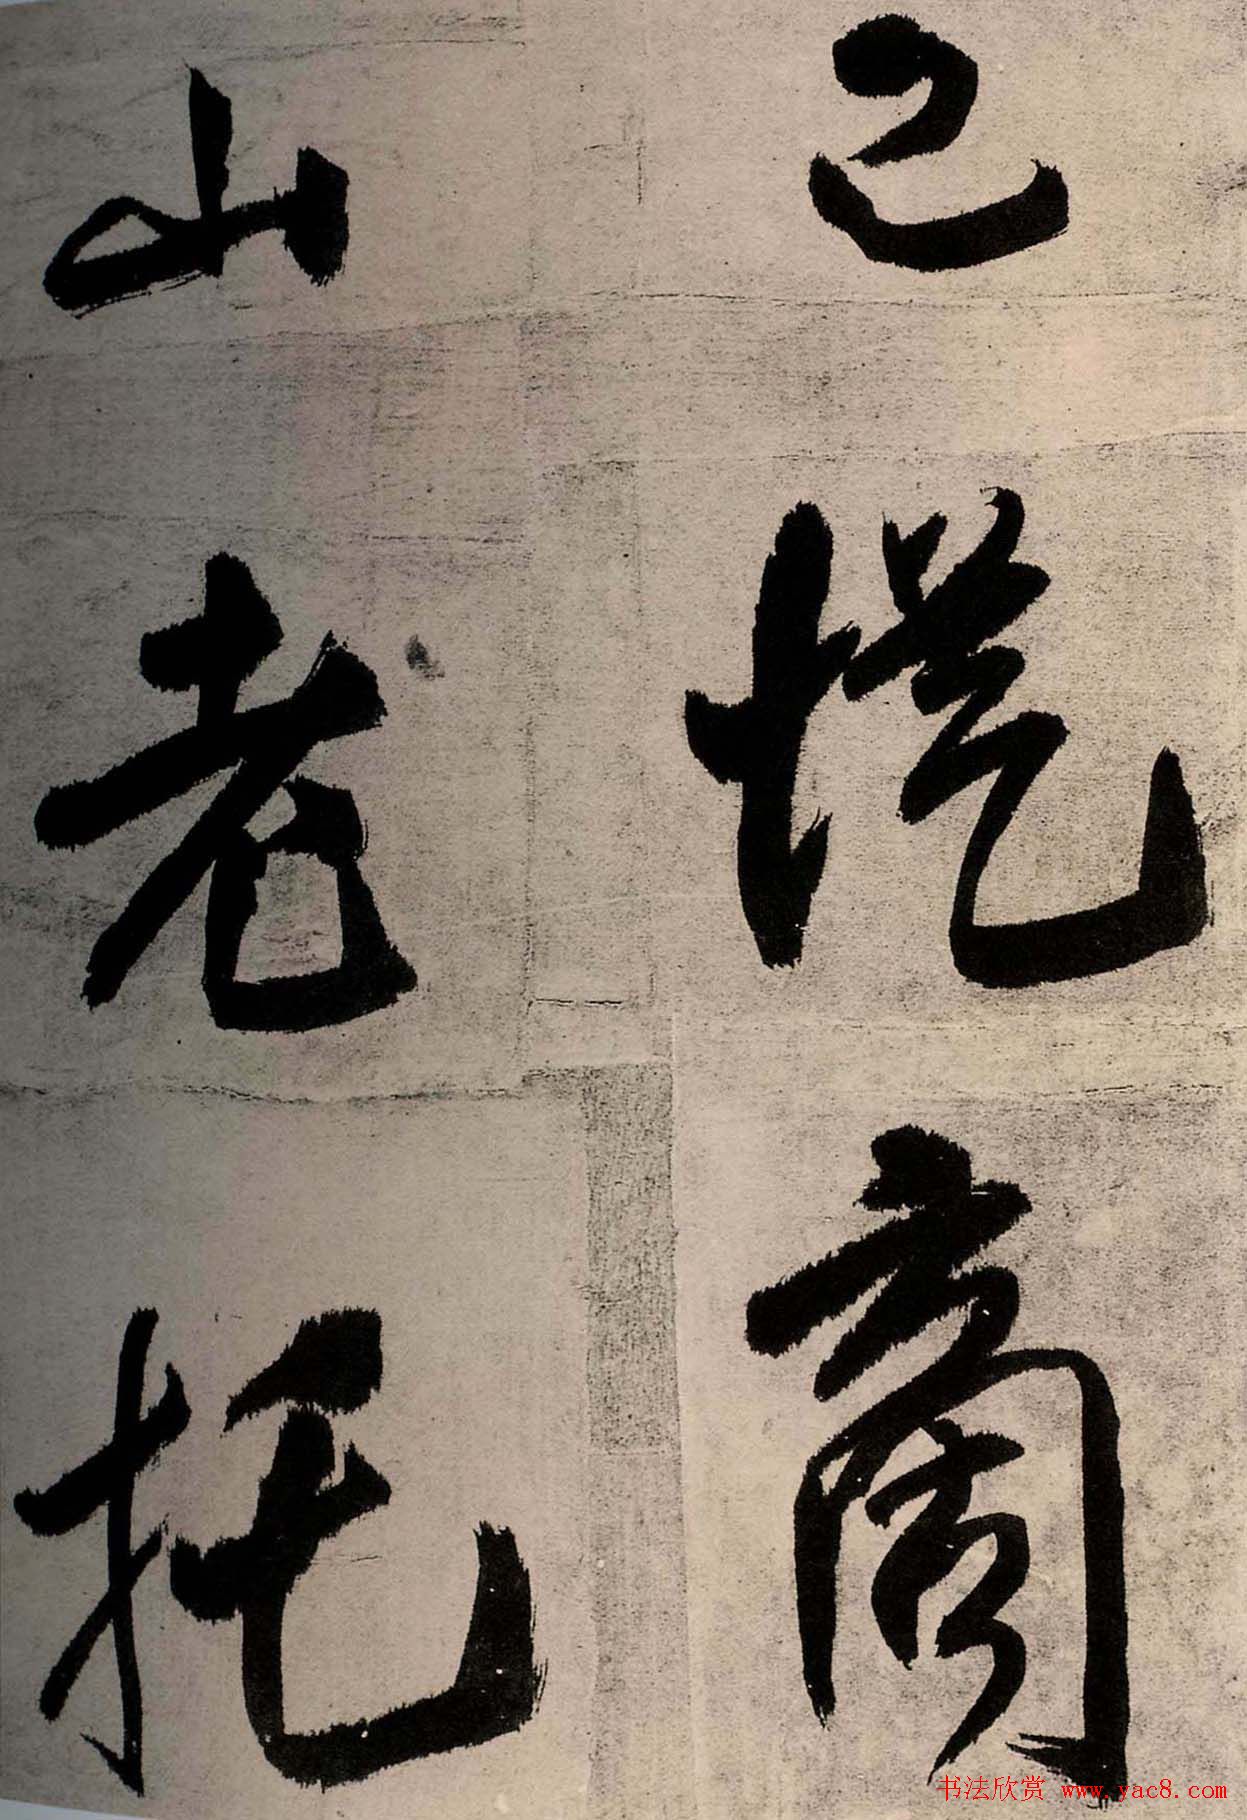 已愧商
山老托
书法欣赏 www.yac8.com